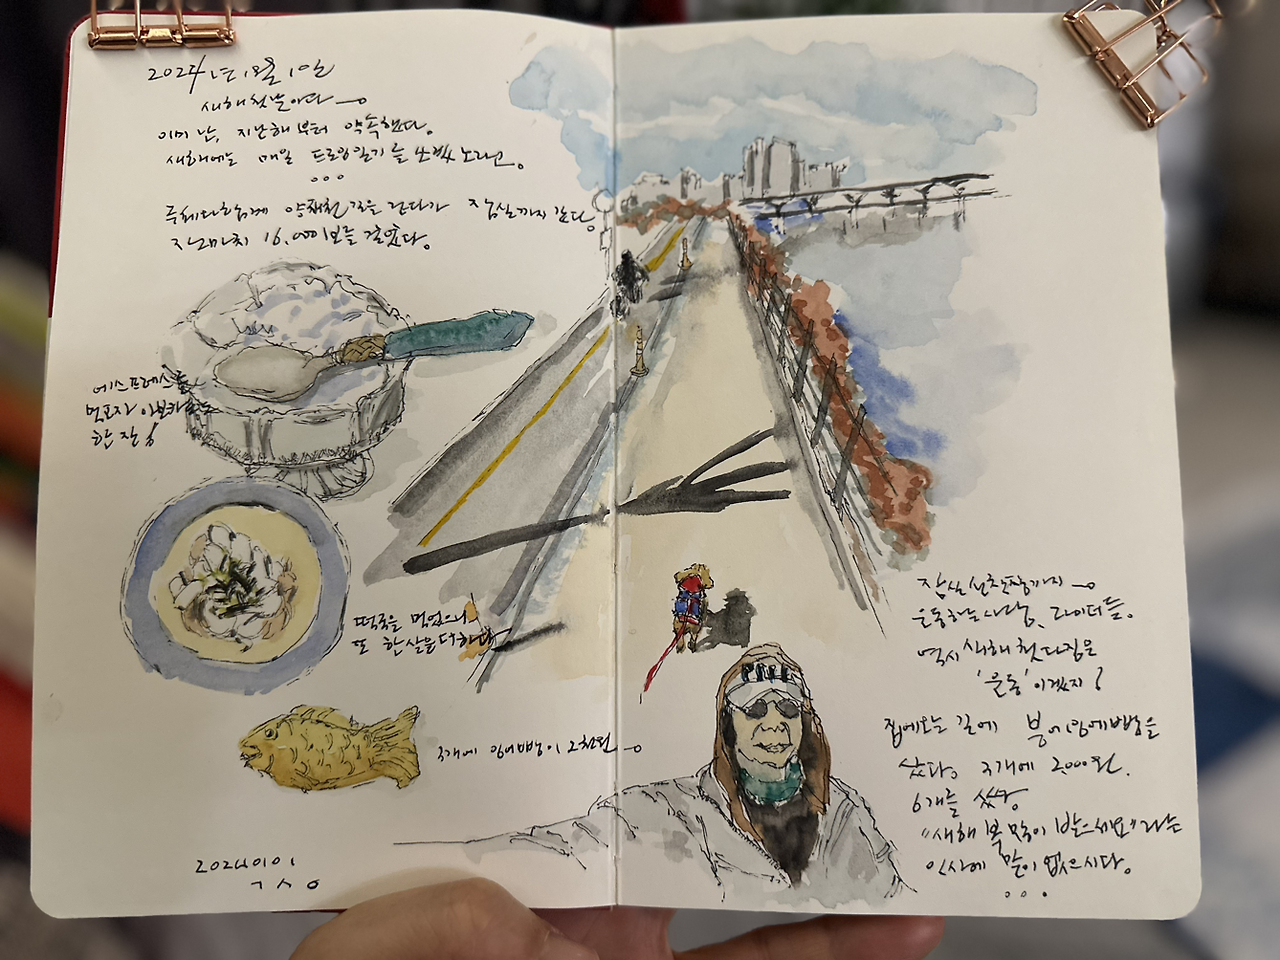 2024년 1월 1일
새해 첫날이다
이미 난, 지난해부터 약속했다.
새해에는 매일 드로잉일기를 쓰겠노라고.
루체와 함께 양재천 길을 걷다가 잠실까지 갔다
자그마치 16,000보를 걸었다.
에스프레소를
아보카
한 잔!
떡국을 먹었으니
또 한 살을 더하다
3개에 잉어빵이 2천원
20240101
잠실 선착장까지
운동하는 사람, 라이더들.
역시 새해 첫 다짐은
'운동'이겠지!
집에 오는 길에 붕어잉어빵을
샀다. 3개에 2000원.
6개를 샀당
"새해 복 많이 받으세요"라는
인사에 말이 없으시다.